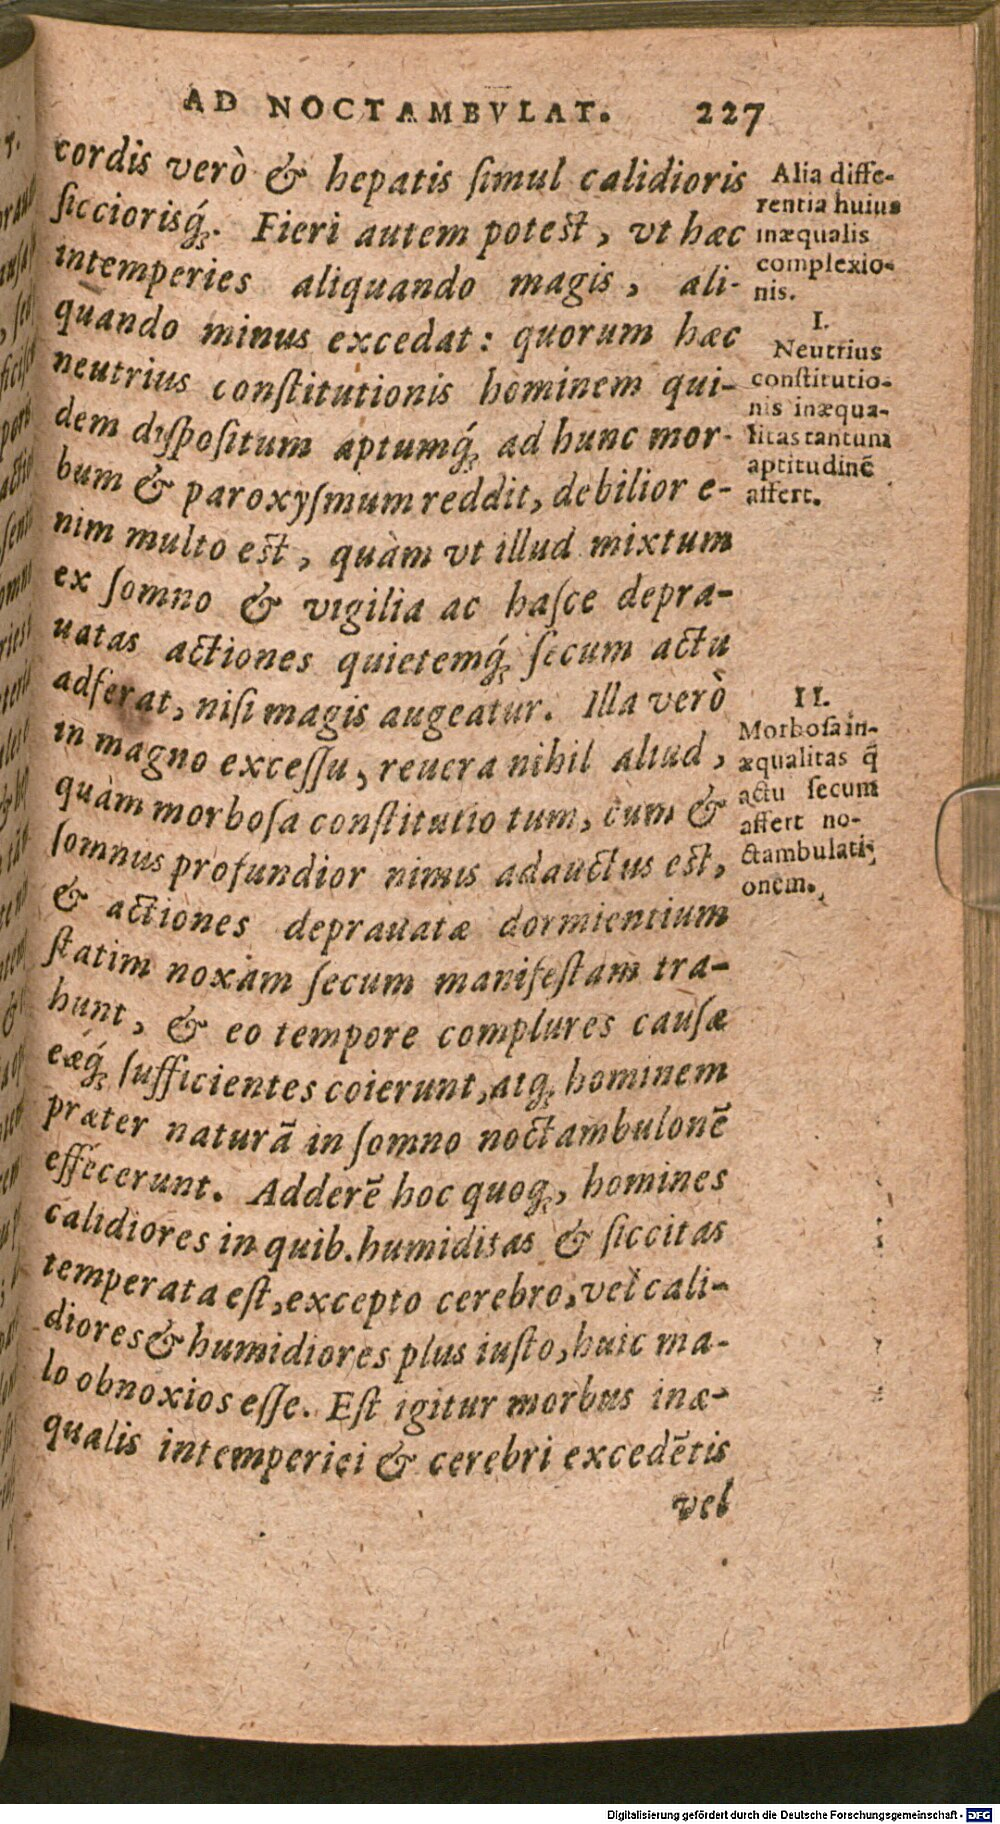 AD NOCTAMBVLAT. 227
cordis verò & hepatis ſimul calidioris
ſicciorisq́;. Fieri autem poteſt, vt hæc
intemperies aliquando magis, ali-
quando minus excedat: quorum hæc
neutrius conſtitutionis hominem qui-
dem dyſpoſitum aptumq́; ad hunc mor-
bum & paroxyſmum reddit, debilior e-
nim multo eſt, quàm vt illud mixtum
ex ſomno & vigilia ac haſce depra-
uatas actiones quietemq́; ſecum actu
adferat, niſi magis augeatur. Illa verò
in magno exceſſu, reuera nihil aliud,
quàm morboſa conſtitutio tum, cum &
ſomnus profundior nimis adauctus eſt,
& actiones deprauatæ dormientium
ſtatim noxam ſecum manifeſtam tra-
hunt, & eo tempore complures cauſæ
eæq́; ſufficientes coierunt, atq; hominem
præter naturā in ſomno noctambulonē
effecerunt. Adderē hoc quoq;, homines
calidiores in quib. humiditas & ſiccitas
temperata eſt, excepto cerebro, vel cali-
diores & humidiores plus iuſto, huic ma-
lo obnoxios eſſe. Eſt igitur morbus inæ-
qualis intemperiei & cerebri excedētis
vel
Alia diffe-
rentia huius
inæqualis
complexio-
nis.
I.
Neutrius
conſtitutio-
nis inæqua-
litas tantum
aptitudinē
affert.
II.
Morboſa in-
æqualitas q̄
actu ſecum
affert no-
ctambulati-
onem.
Digitalisierung gefördert durch die Deutsche Forschungsgemeinschaft - DFG